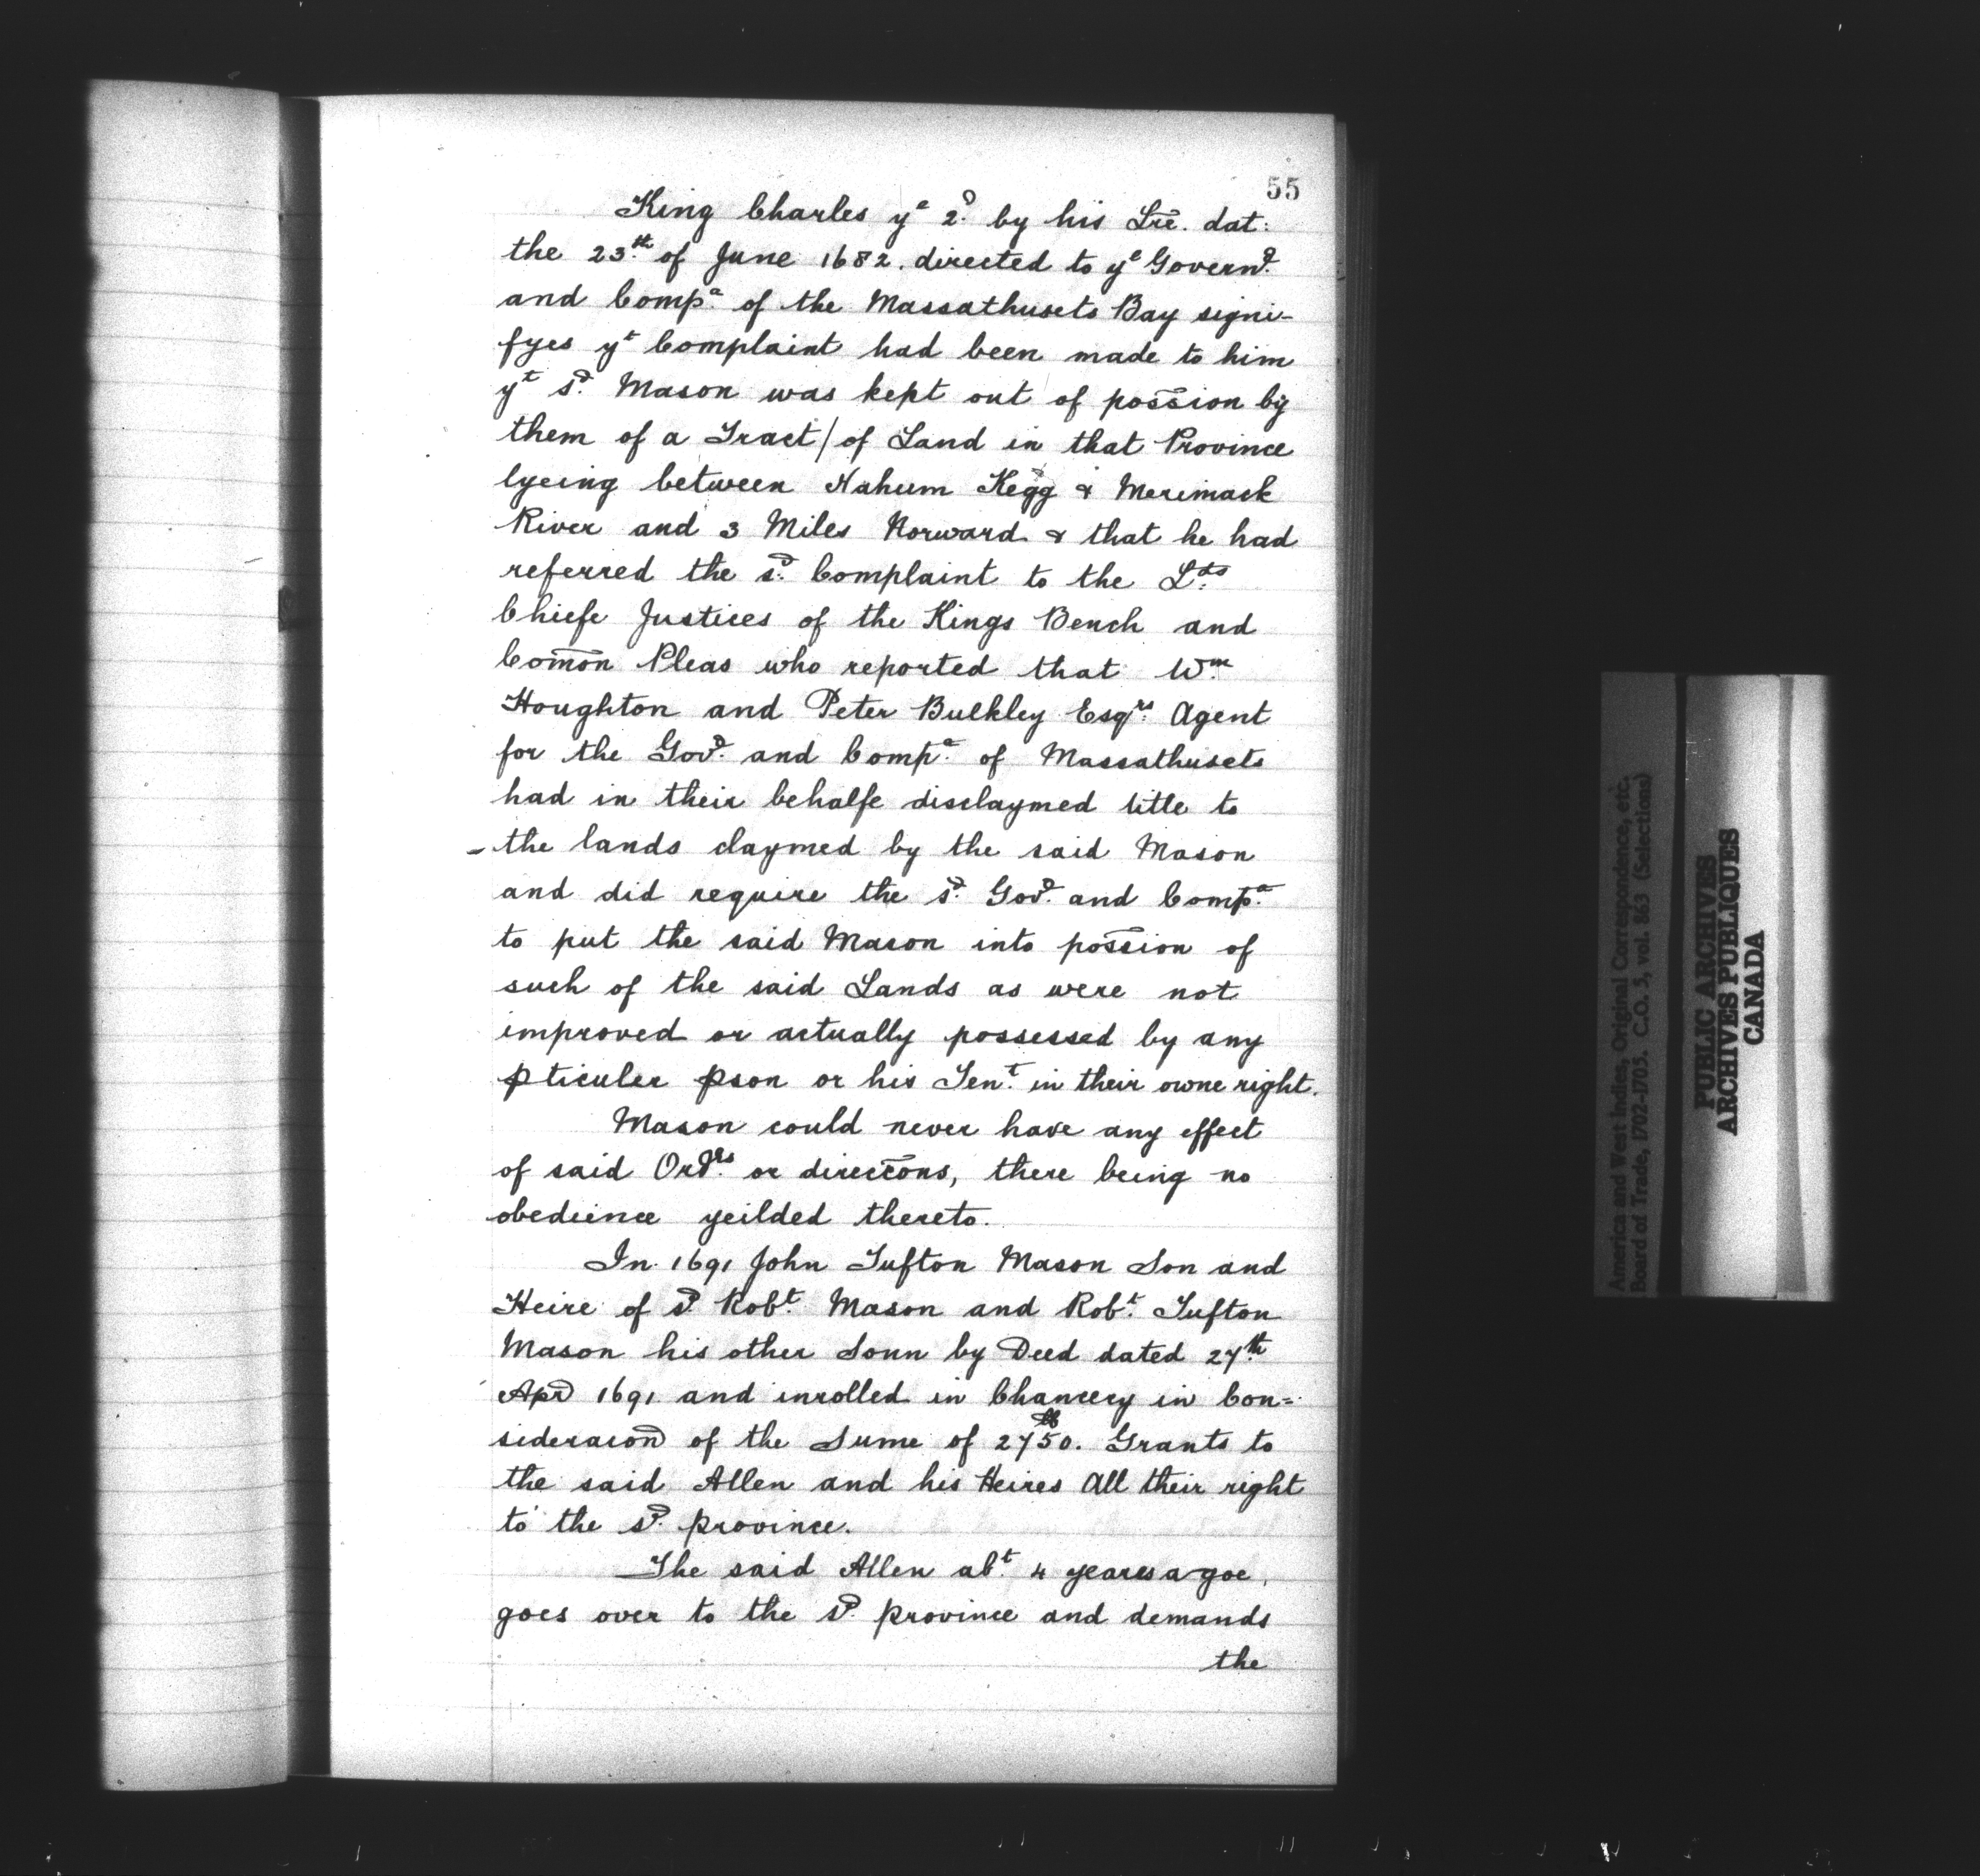 55
King Charles yᵉ 2ᵈ by his Lr̃e. dat:
the 23.ᵗʰ of June 1682. directed to yᵉ Governᵈ.
and Comp.ᵃ of the Massathusets Bay signi-
fyes yᵗ Complaint had been made to him
yᵗ s.ᵈ Mason was kept out of possion by
them of a Tract/of Land in that Province
lyeing between Nahum Kegg & Merimack
River and 3 Miles Norward & that he had
referred the s.ᵈ Complaint to the L.ᵈˢ
Chiefe Justices of the Kings Bench and
Com̄on Pleas who reported that W.ᵐ
Houghton and Peter Bulkley Esqʳˢ. Agent
for the Govᵈ. and Comp.ᵃ of Massathusets
had in their behalfe disclaymed title to
the lands claymed by the said Mason
and did require the s.ᵈ Govᵈ. and Comp.ᵃ
to put the said Mason into possion of
such of the said Lands as were not
improved or actually possessed by any
ꝑticuler ꝑson or his Ten.ᵗ in their owne right.
Mason could never have any effect
of said Ordʳˢ. or direcc̄ons, there being no
obedience yeilded thereto.
In 1691 John Tufton Mason Son and
Heire of s.ᵈ Rob.ᵗ Mason and Rob.ᵗ Tufton
Mason his other Sonn by Deed dated 27.ᵗʰ
Apr̃ 1691 and inrolled in Chancery in Con=
sideracon̄ of the Sume of 2750.ˡᵇ Grants to
the said Allen and his Heires All their right
to the s.ᵈ province.
The said Allen ab.ᵗ 4 yeares agoe,
goes over to the s.ᵈ province and demands
the
America and West Indies, Original Correspondence, etc.
Board of Trade, 1702-1705. C.O. 5, vol. 863 (Selections)
PUBLIC ARCHIVES
ARCHIVES PUBLIQUES
CANADA